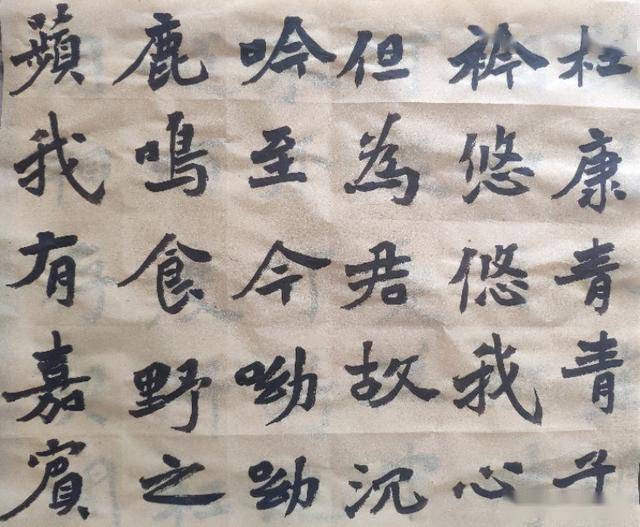 杜康青青子
衿悠悠我心
但為君故沉
吟至今呦呦
鹿鳴食野之
蘋我有嘉賓